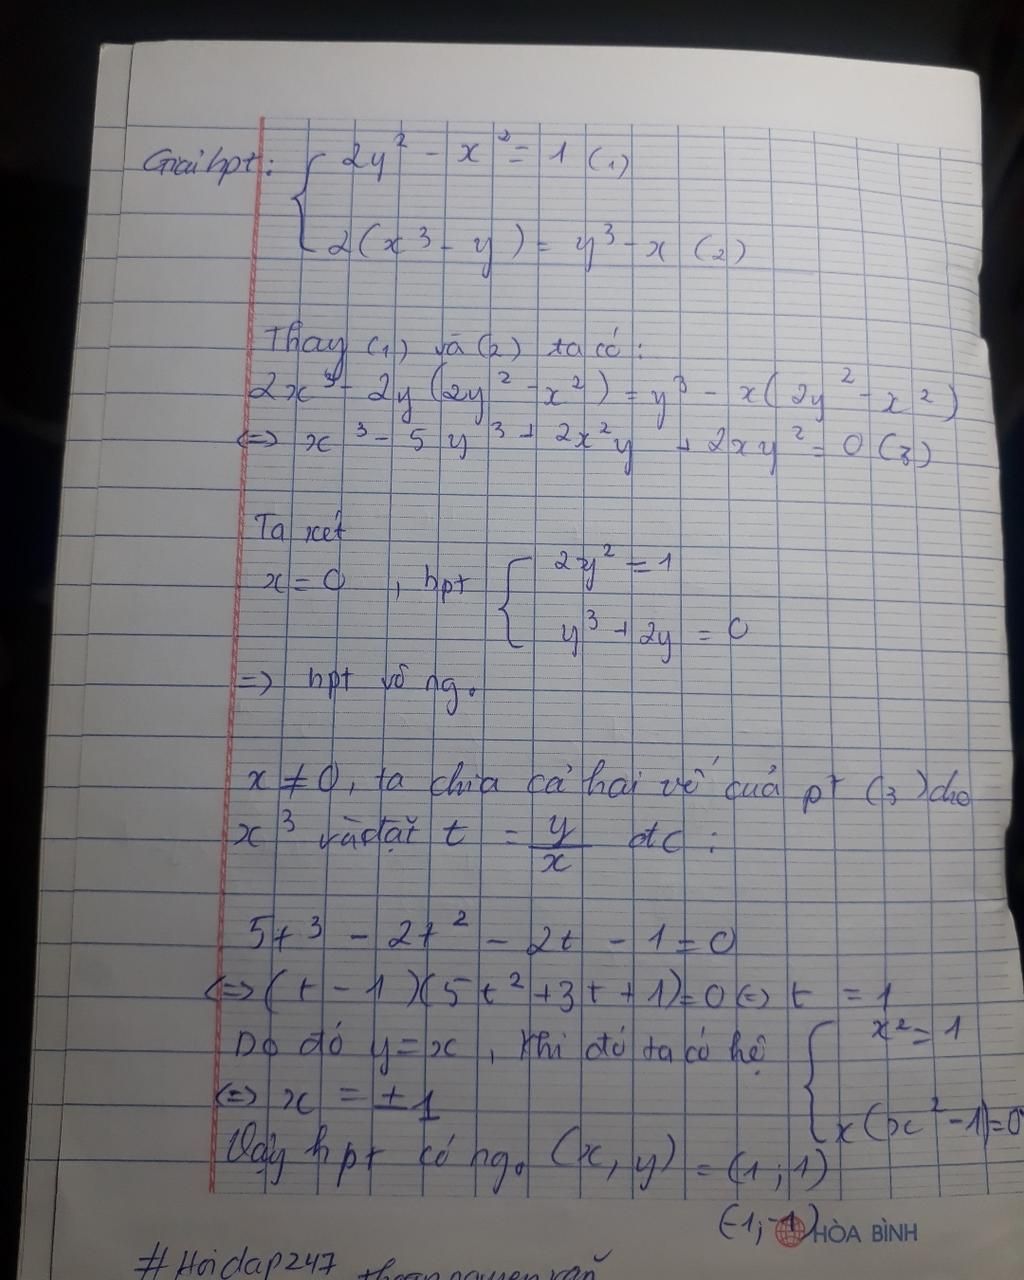 Giải hpt: { 2y² - x² = 1 (1)
2(x³ - y) = y³ - x (2)
Thay (1) và (2) ta có:
2x³ - 2y(2y² - x²) = y³ - x(2y² - x²)
<=> x³ - 5y³ + 2x²y + 2xy² = 0 (3)
Ta xét
x = 0 , hpt { 2y² = 1
y³ + 2y = 0
=> hpt vô ng.
x ≠ 0, ta chia cả hai vế của pt (3) cho
x³ và đặt t = y/x đc :
5t³ - 2t² - 2t - 1 = 0
<=> (t - 1)(5t² + 3t + 1) = 0 <=> t = 1
Do đó y = x , khi đó ta có hệ { x² = 1
x(x² - 1) = 0
<=> x = ±1
Vậy hpt có ng. (x, y) = (1; 1)
(-1; -1)
HÒA BÌNH
#Hoidap247